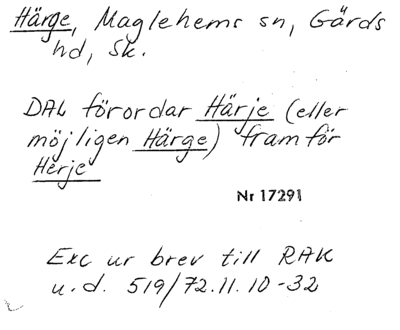 Härge, Maglehems sn, Gärds
hd, Sk.
DAL förordar Härje (eller
möjligen Härge) framför
Herje
Nr 17291
Exc ur brev till RAK
u.d. 519/72.11.10-32